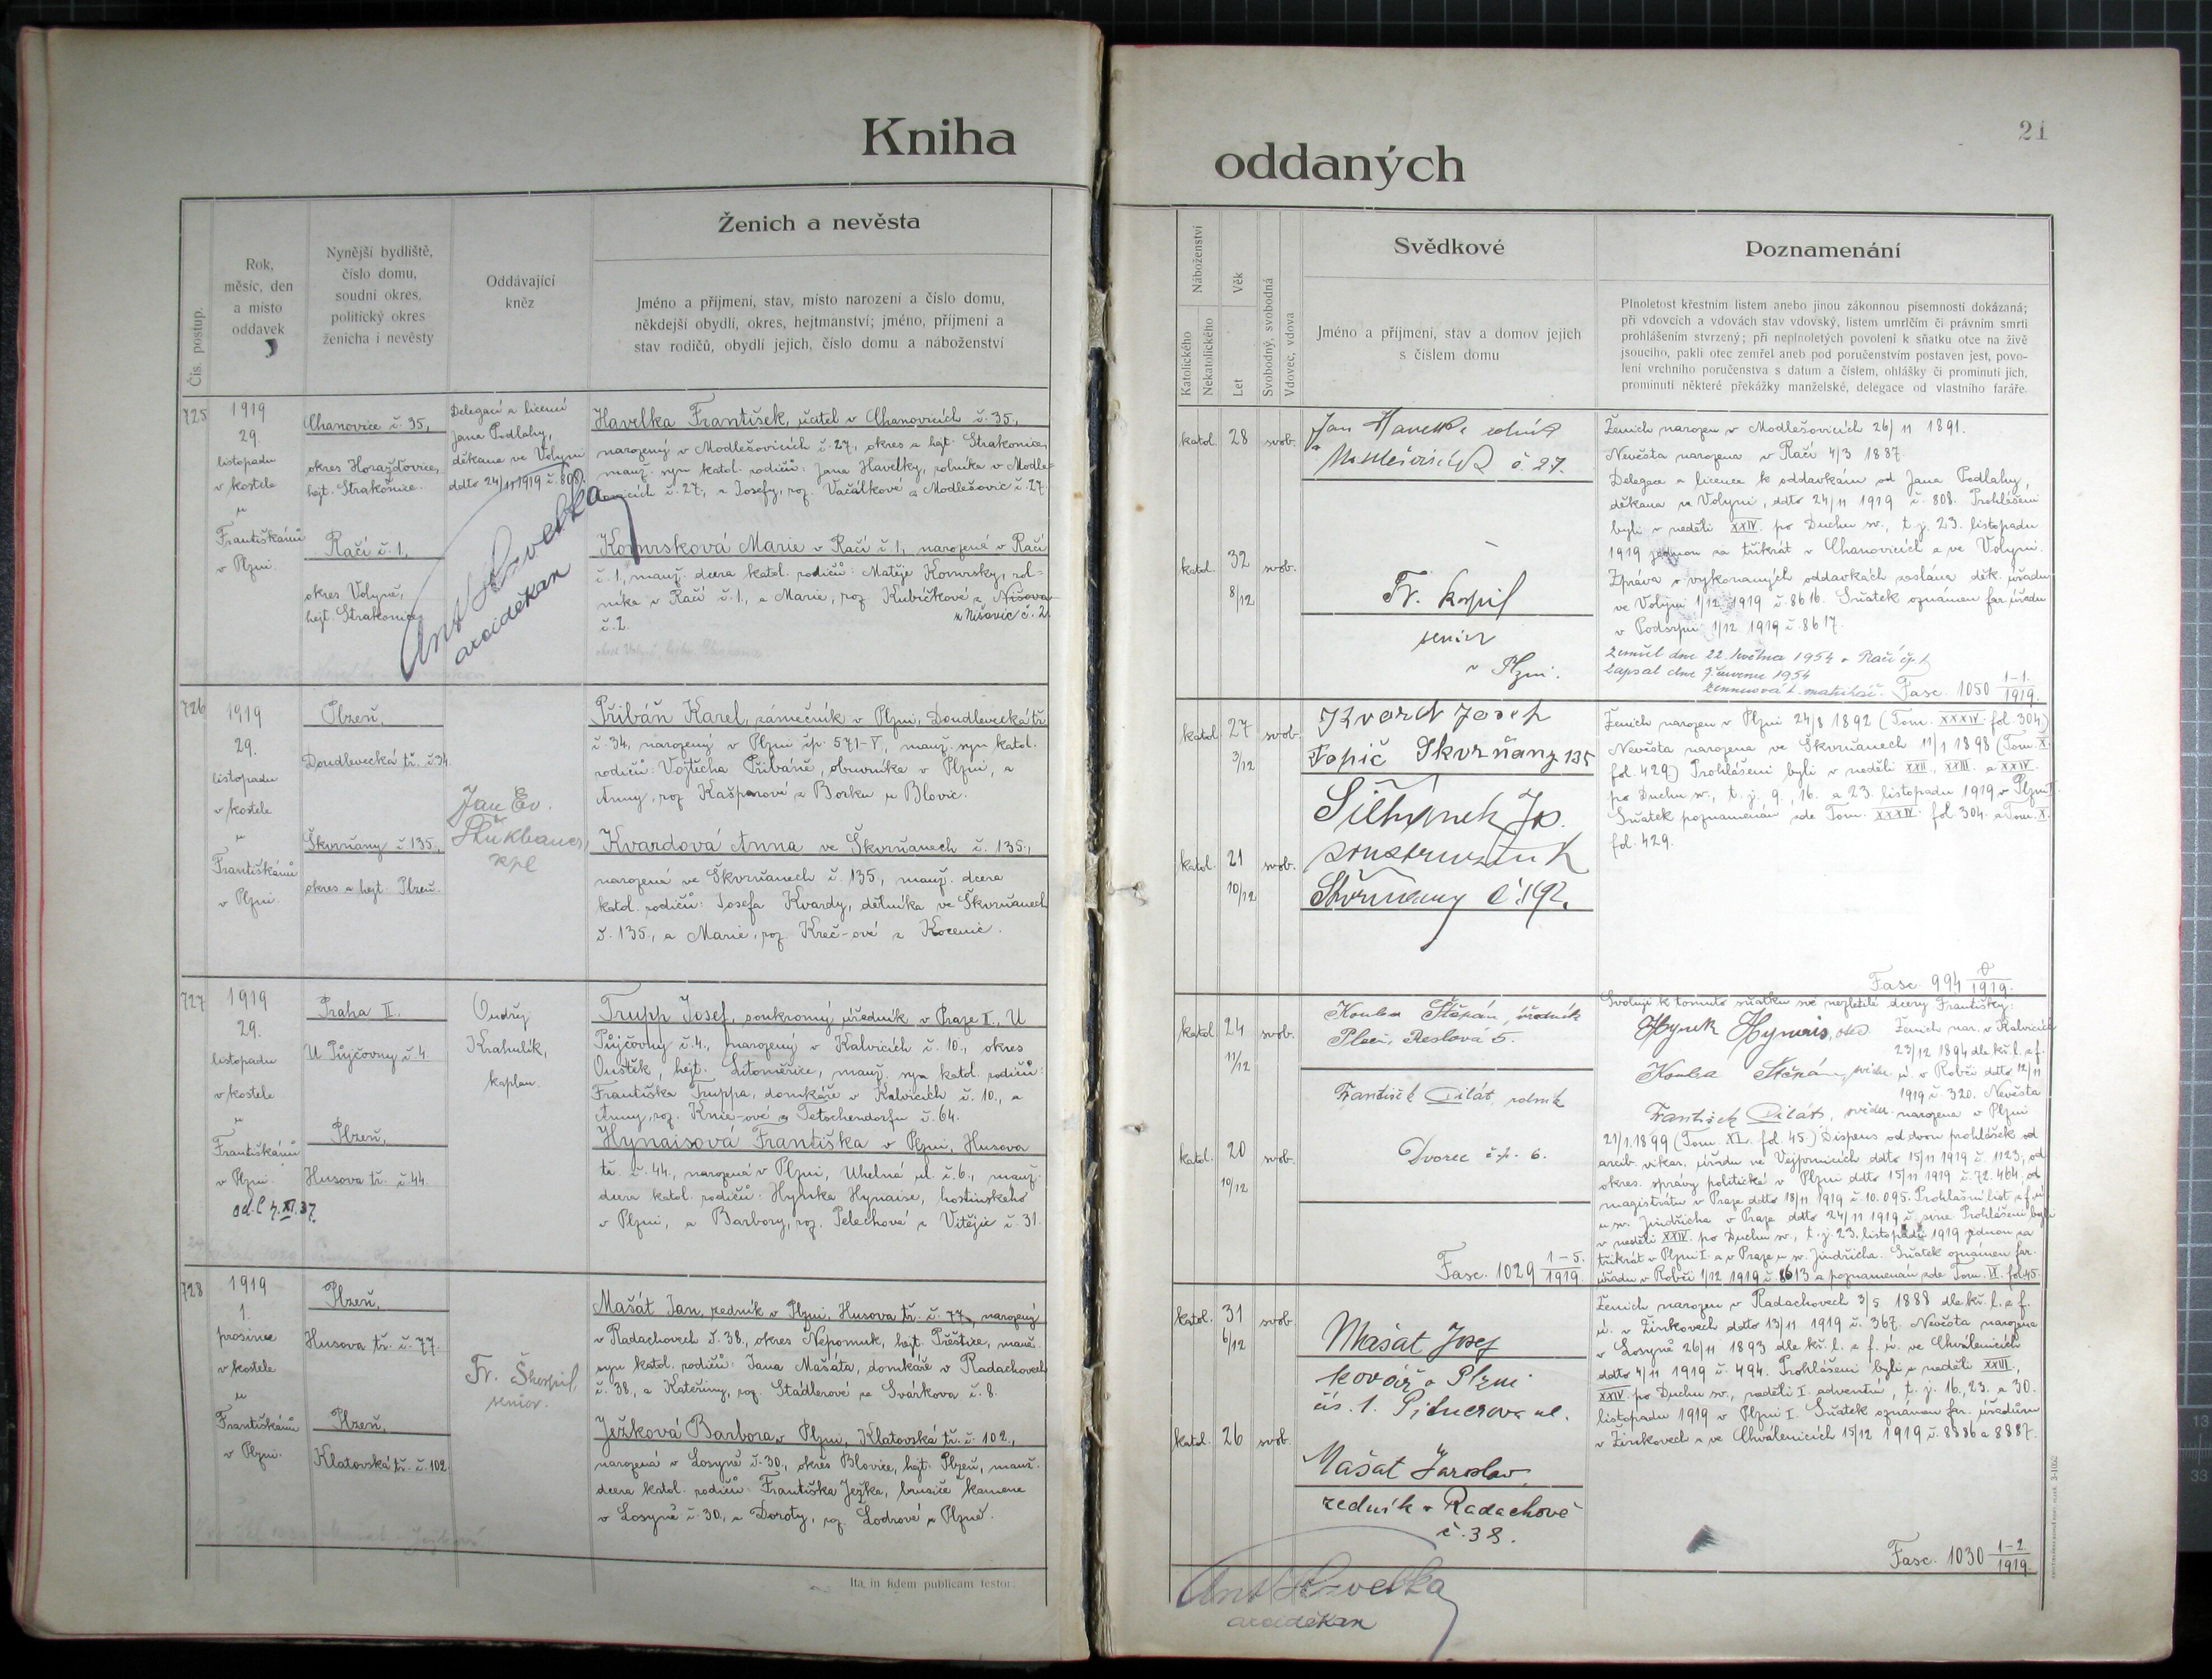 Kniha
oddaných
21
Čís. postup.
Rok,
měsíc, den
a místo
oddavek
Nynější bydliště,
číslo domu,
soudní okres,
politický okres
ženicha i nevěsty
Oddávající
kněz
Ženich a nevěsta
Jméno a příjmení, stav, místo narození a číslo domu,
někdejší obydlí, okres, hejtmanství; jméno, příjmení a
stav rodičů, obydlí jejich, číslo domu a náboženství
Náboženství
Katolického
Nekatolického
Věk
Let
Svobodný, svobodná
Vdovec, vdova
Svědkové
Jméno a příjmení, stav a domov jejich
s číslem domu
Poznamenání
Plnoletost křestním listem anebo jinou zákonnou písemností dokázaná;
při vdovcích a vdovách stav vdovský, listem úmrlčím či právním smrti
prohlášením stvrzený; při neplnoletých povolení k sňatku otce na živě
jsoucího, pakli otec zemřel aneb pod poručenstvím postaven jest, povo-
lení vrchního poručenstva s datum a číslem, ohlášky či prominutí jich,
prominutí některé překážky manželské, delegace od vlastního faráře.
725
1919
29.
listopadu
v kostele
u
Františkánů
v Plzni.
Chanovice č. 35,
okres Horažďovice,
hejt. Strakonice.
Račí č. 1,
okres Volyně,
hejt. Strakonice
Delegací a licencí
Jana Podlahy,
děkana ve Volyni
ddto 24/11 1919 č. 808.
arciděkan
Havelka František, učitel v Chanovicích č. 35,
narozený v Modlešovicích č. 27, okres a hejt. Strakonice,
manž. syn katol. rodičů: Jana Havelky, rolníka v Modle-
šovicích č. 27, a Josefy, roz. Vačálkové z Modlešovic č. 27.
Komrsková Marie v Račí č. 1, narozená v Račí
č. 1, manž. dcera katol. rodičů: Matěje Komrsky, rol-
níka v Račí č. 1., a Marie, roz. Kubičkové z Nišova
č. 2. z Nišovic č. 2.
katol. 28 svob.
katol. 32 8/12 svob.
Jan Havelka rolník
v Modlešovicích č. 27.
senior
v Plzni.
Ženich narozen v Modlešovicích 26/11 1891.
Nevěsta narozena v Račí 4/3 1887.
Delegace a licence k oddavkám od Jana Podlahy,
děkana ve Volyni, ddto 24/11 1919 č. 808. Prohlášeni
byli v neděli XXIV. po Duchu sv., t. j. 23. listopadu
1919 jednou za třikrát v Chanovicích a ve Volyni.
Zpráva o vykonaných oddavkách zaslána děk. úřadu
ve Volyni 1/12 1919 č. 8616. Sňatek oznámen far. úřadu
v Podsrpu 1/12 1919 č. 8617.
Zemřel dne 22. května 1954 v Račí čp. 1
Zapsal dne 7. června 1954
Fasc. 1050 1-1./1919.
726
1919
29.
listopadu
v kostele
u
Františkánů
v Plzni.
Plzeň,
Doudlevecká tř. č. 34.
Škvrňany č. 135,
okres a hejt. Plzeň.
Jan Ev.
kpl
Přibáň Karel, zámečník v Plzni, Doudlevecká tř.
č. 34, narozený v Plzni čp. 571-V, manž. syn katol.
rodičů: Vojtěcha Přibáně, obuvníka v Plzni, a
Anny, roz. Kašparové z Borku u Blovic.
Kvardová Anna ve Škvrňanech č. 135,
narozená ve Škvrňanech č. 135, manž. dcera
katol. rodičů: Josefa Kvardy, dělníka ve Škvrňanech
č. 135, a Marie, roz. Kreč-ové z Kocenic.
katol. 27 3/12 svob.
katol. 21 10/12 svob.
Kvarda Josef
Topič Škvrňany 135
Škvrňany č. 192.
Ženich narozen v Plzni 24/8 1892 (Tom. XXXIV. fol. 304.)
Nevěsta narozena ve Škvrňanech 11/1 1898 (Tom. X.
fol. 429.) Prohlášeni byli v neděli XXII., XXIII. a XXIV.
po Duchu sv., t. j. 9., 16. a 23. listopadu 1919 v Plzni I.
Sňatek poznamenán zde Tom. XXXIV. fol. 304. a Tom. X.
fol. 429.
Fasc. 994 /1919.
727
1919
29.
listopadu
v kostele
u
Františkánů
v Plzni.
Praha II.
U Půjčovny č. 4.
Plzeň,
Husova tř. č. 44.
Ondřej
Krahulík,
kaplan.
Trupp Josef, soukromý úředník v Praze I., U
Půjčovny č. 4., narozený v Kalvicích č. 10., okres
Ouštěk, hejt. Litoměřice, manž. syn katol. rodičů:
Františka Truppa, domkáře v Kalvicích č. 10., a
Anny, roz. Knie-ové z Tetschendorfu č. 64.
Hynaisová Františka v Plzni, Husova
tř. č. 44., narozená v Plzni, Uhelná ul. č. 6., manž.
dcera katol. rodičů: Hynka Hynaise, hostinského
v Plzni, a Barbory, roz. Pelechové z Vitějic č. 31.
katol. 24 11/12 svob.
katol. 20 10/12 svob.
Koubа Štěpán, úředník
Plzeň, Reslova 5.
František Pilát, rolník
Dvorec čp. 6.
Fasc. 1029 1-5./1919.
Svoluji k tomuto sňatku své nezletilé dcery Františky:
Hynek Hynais, otec. Ženich nar. v Kalvicích
23/12 1894 dle kř. l. z f.
Kouba Štěpán, svědek. ú. v Robči ddto 12/11
1919 č. 320. Nevěsta
František Pilát, svědek. narozena v Plzni
21/1. 1899 (Tom. XL. fol. 45.) Dispens od dvou prohlášek od
arcib. vikar. úřadu ve Vejprnicích ddto 15/11 1919 č. 1123, od
okres. správy politické v Plzni ddto 15/11 1919 č. 72.464, od
magistrátu v Praze ddto 18/11 1919 č. 10.095. Prohlašní list z f. ú.
u sv. Jindřicha v Praze ddto 24/11 1919 č. sine. Prohlášeni byli
v neděli XXIV. po Duchu sv., t. j. 23. listopadu 1919 jednou za
třikrát v Plzni I. a v Praze u sv. Jindřicha. Sňatek oznámen far.
úřadu v Robči 1/12 1919 č. 8613 a poznamenán zde Tom. fol. 45.
728
1919
1.
prosince
v kostele
u
Františkánů
v Plzni.
Plzeň,
Husova tř. č. 77.
Plzeň,
Klatovská tř. č. 102.
Fr. Škorpil,
senior.
Mašát Jan, řezník v Plzni, Husova tř. č. 77, narozený
v Radachovech č. 38., okres Nepomuk, hejt. Přeštice, manž.
syn katol. rodičů: Jana Mašáta, domkáře v Radachovech
č. 38., a Kateřiny, roz. Stádlerové ze Svárkova č. 8.
Ježková Barbora v Plzni, Klatovská tř. č. 102.,
narozená v Losyně č. 30., okres Blovice, hejt. Plzeň, manž.
dcera katol. rodičů: Františka Ježka, brusiče kamene
v Losyně č. 30., a Doroty, roz. Lodrové z Plzně.
katol. 31 6/12 svob.
katol. 26 svob.
Mašat Josef
kovář v Plzni
čís. 1. ul.
Mašat Jaroslav
řezník v Radachově
č. 38.
Ženich narozen v Radachovech 3/5 1888 dle kř. l. z f.
ú. v Žinkovech ddto 13/11 1919 č. 367. Nevěsta narozena
v Losyně 26/11 1893 dle kř. l. z f. ú. ve Chválenicích
ddto 4/11 1919 č. 494. Prohlášeni byli v neděli XXIII.,
XXIV. po Duchu sv., neděli I. adventní, t. j. 16., 23. a 30.
listopadu 1919 v Plzni I. Sňatek oznámen far. úřadům
v Žinkovech a ve Chválenicích 15/12 1919 č. 8886 a 8887.
Fasc. 1030 1-2/1919.
Ita in fidem publicam testor:
arciděkan